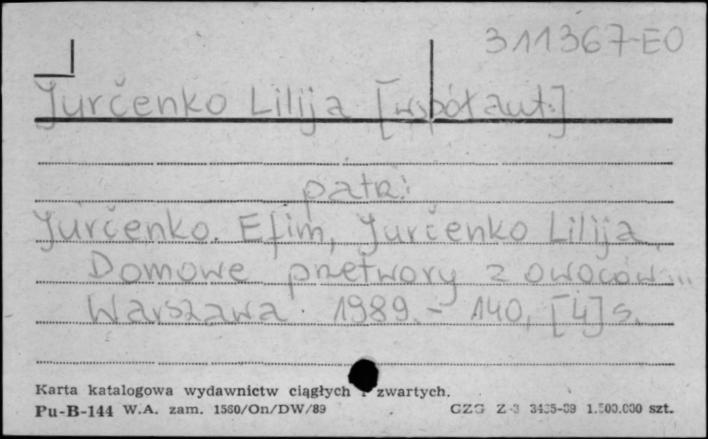 311367-EO
Jurčenko Lilija [współaut.]
patrz:
Jurčenko. Efim, Jurčenko Lilija.
Domowe przetwory z owoców...
Warszawa 1989. - 140, [4] s.
Karta katalogowa wydawnictw ciągłych i zwartych.
Pu-B-144 W.A. zam. 1580/On/DW/89 CZG Z-3 3435-89 1.500.000 szt.